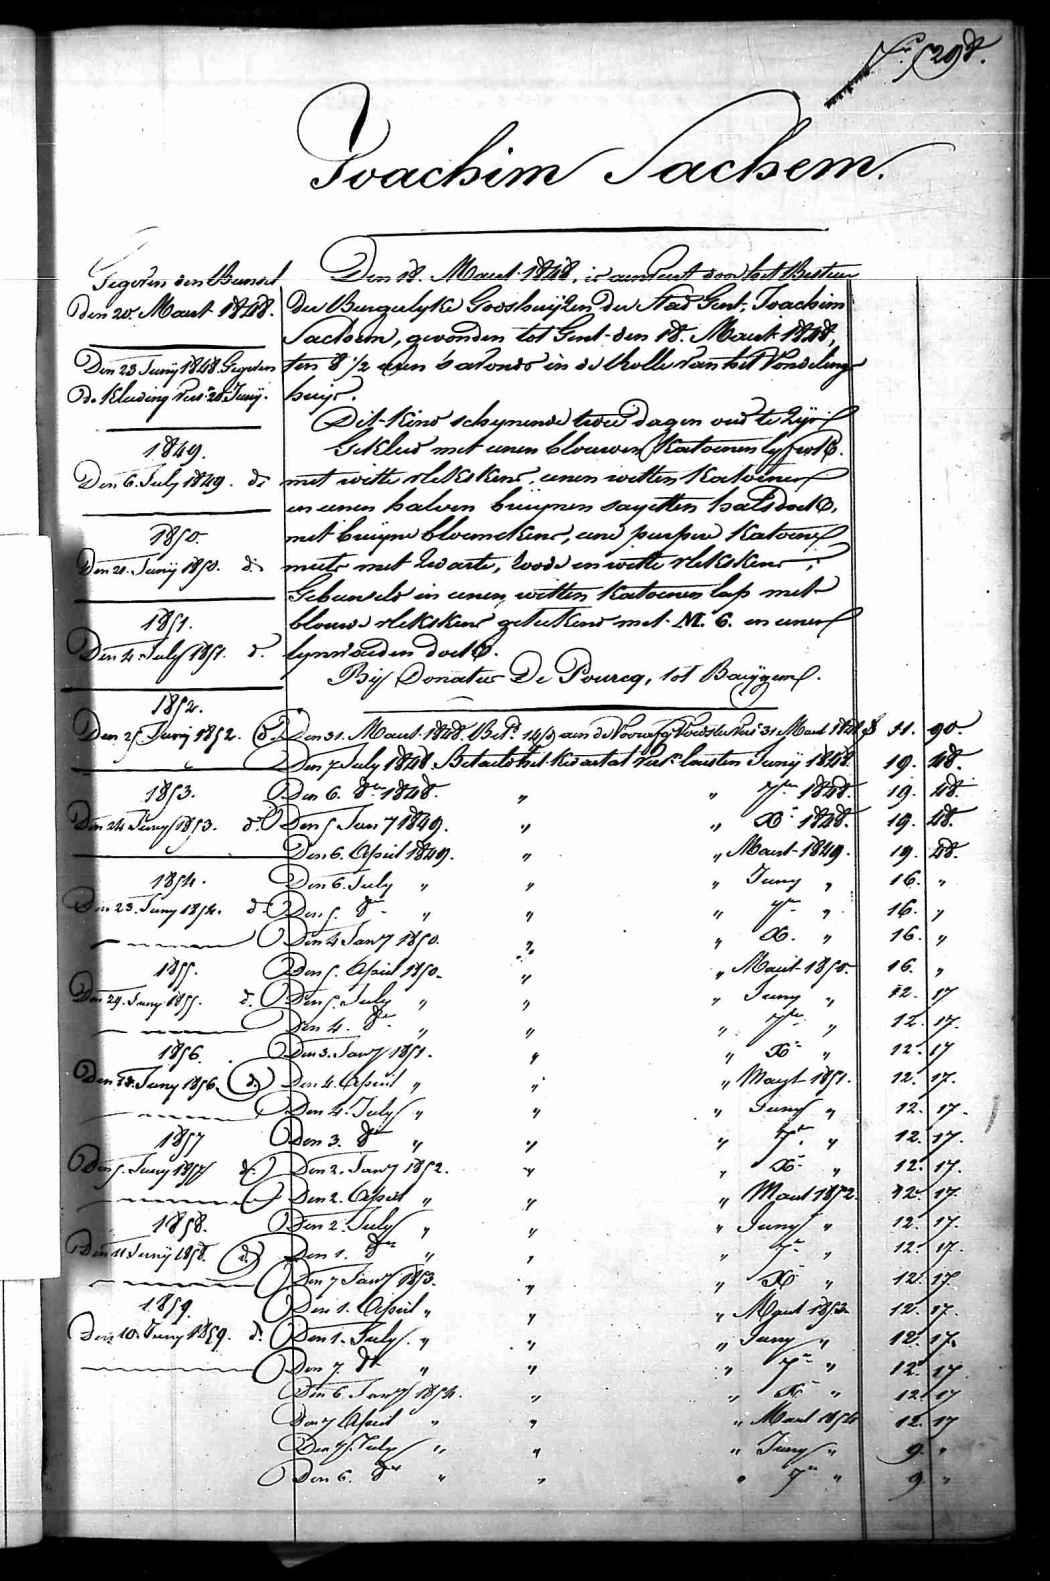 N.° 298.
Joachim Sachem.
Gegeven den Bunsel
Den 20. Maert 1848.
Den 23 Junÿ 1848. Gegeven
de Kleeding vers. 20 Junÿ.
1849.
Den 6. July 1849. d°
1850.
Den 21. Junÿ 1850. d°
1851.
Den 4. July 1851. d°
1852.
Den 25 Junÿ 1852. d°
1853.
Den 24 Juny 1853. d°
1854.
Den 23. Juny 1854. d°
1855.
Den 29. Juny 1855. d°
1856.
Den 28. Juny 1856. d°
1857
Den 5. Juny 1857 d°
1858.
Den 11 Junÿ 1858. d°
1859.
Den 10. Juny 1859. d°
Den 18. Maert 1848, is aenveert door het Bestuer
der Burgerlyke Godshuÿzen der Stad Gent, Joachim
Sachem, gevonden tot Gent den 18. Maert 1848,
ten 8 1/2 uren 's avonds in de Rolle van het Vondeling
huis.
Dit Kind schynende twee dagen oud te zyn
Gekleed met eenen blauwen Katoenen lyfrok
met witte vlekskens, eenen witten Katoenen
en eenen halven bruynen sayetten halsdoek,
met bruyne bloemekens, eene purpere Katoene
muts met Zwarte, roode en witte vlekskens;
Gebunseld in eenen witten Katoenen lap met
blauwe vlekskens geteekend met M. G. en eenen
lynwaeden doek.
Bÿ Donatus De Pourcq, tot Baeygem.
Den 31. Maert 1848. Bet.d 14/3 aen de Voorige Voedster vers. 31 Maert 1848 f 11. 90.
Den 7 July 1848. Betaeld het Kwartael vers. laesten Junÿ 1848 19. 48.
Den 6. 8er 1848. " " 7er 1848. 19. 48.
Den 5 Jany 1849. " " Xer 1848. 19. 48.
Den 6. April 1849. " " Maert 1849. 19. 48.
Den 6. July " " " Juny " 16. "
Den 5. 8er " " " 7er " 16. "
Den 4 Jany 1850. " " Xer " 16. "
Den 5. April 1850. " " Maert 1850. 16. "
Den 5. July " " " Juny " 12. 17
Den 4. 8er " " " 7er " 12. 17.
Den 3. Jany 1851. " " Xer " 12. 17
Den 4. April " " " Maert 1851. 12. 17.
Den 4. July " " " Juny " 12. 17.
Den 3. 8er " " " 7er " 12. 17.
Den 2. Jany 1852. " " Xer " 12. 17.
Den 2. April " " " Maert 1852. 12. 17.
Den 2. July " " " Juny " 12. 17.
Den 1. 8er " " " 7er " 12. 17.
Den 7 Jany 1853. " " Xer " 12. 17.
Den 1. April " " " Maert 1853 12. 17.
Den 1. July " " " Juny " 12. 17.
Den 7. 8er " " " 7er " 12. 17
Den 6. Jany 1854. " " Xer " 12. 17
Den 7 April " " " Maert 1854 12. 17
Den 7. July " " " Juny " 9. "
Den 6. 8er " " " 7er " 9. "